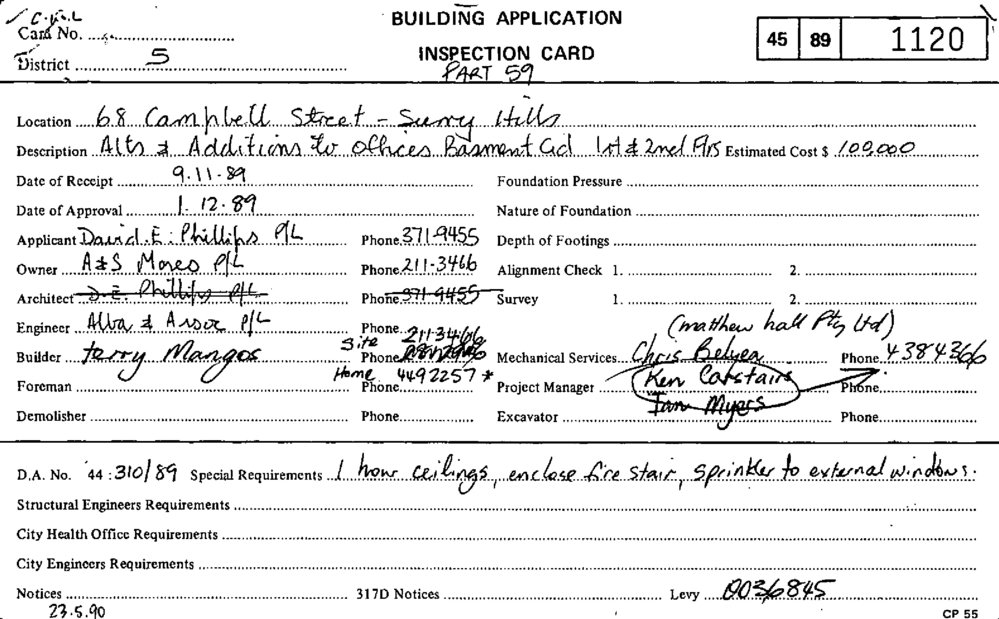 C.U.L BUILDING APPLICATION
Card No. 45 89 1120
INSPECTION CARD
District 5 PART 59
Location 68 Campbell Street - Surry Hills
Description Alts & Additions to offices Basment Gd 1st & 2nd Flrs Estimated Cost $ 100,000
Date of Receipt 9.11.89 Foundation Pressure
Date of Approval 1.12.89 Nature of Foundation
Applicant David.E. Phillips P/L Phone 371-9455 Depth of Footings
Owner A&S Moreo P/L Phone 211-3466 Alignment Check 1. 2.
Architect D.E. Phillips P/L Phone 371-9455 Survey 1. 2.
(matthew hall Pty Ltd)
Engineer Alba & Assoc P/L Phone 211-3466
Builder terry Mangos Site Phone Mechanical Services Chris Belyea Phone 4384366
Foreman Home Phone 4492257 * Project Manager Ken Carstairs Phone
Ian Myers
Demolisher Phone Excavator Phone
D.A. No. 44:310/89 Special Requirements 1 hour ceilings, enclose fire stair, sprinkler to external windows.
Structural Engineers Requirements
City Health Office Requirements
City Engineers Requirements
Notices 317D Notices Levy 0036845
23.5.90 CP 55